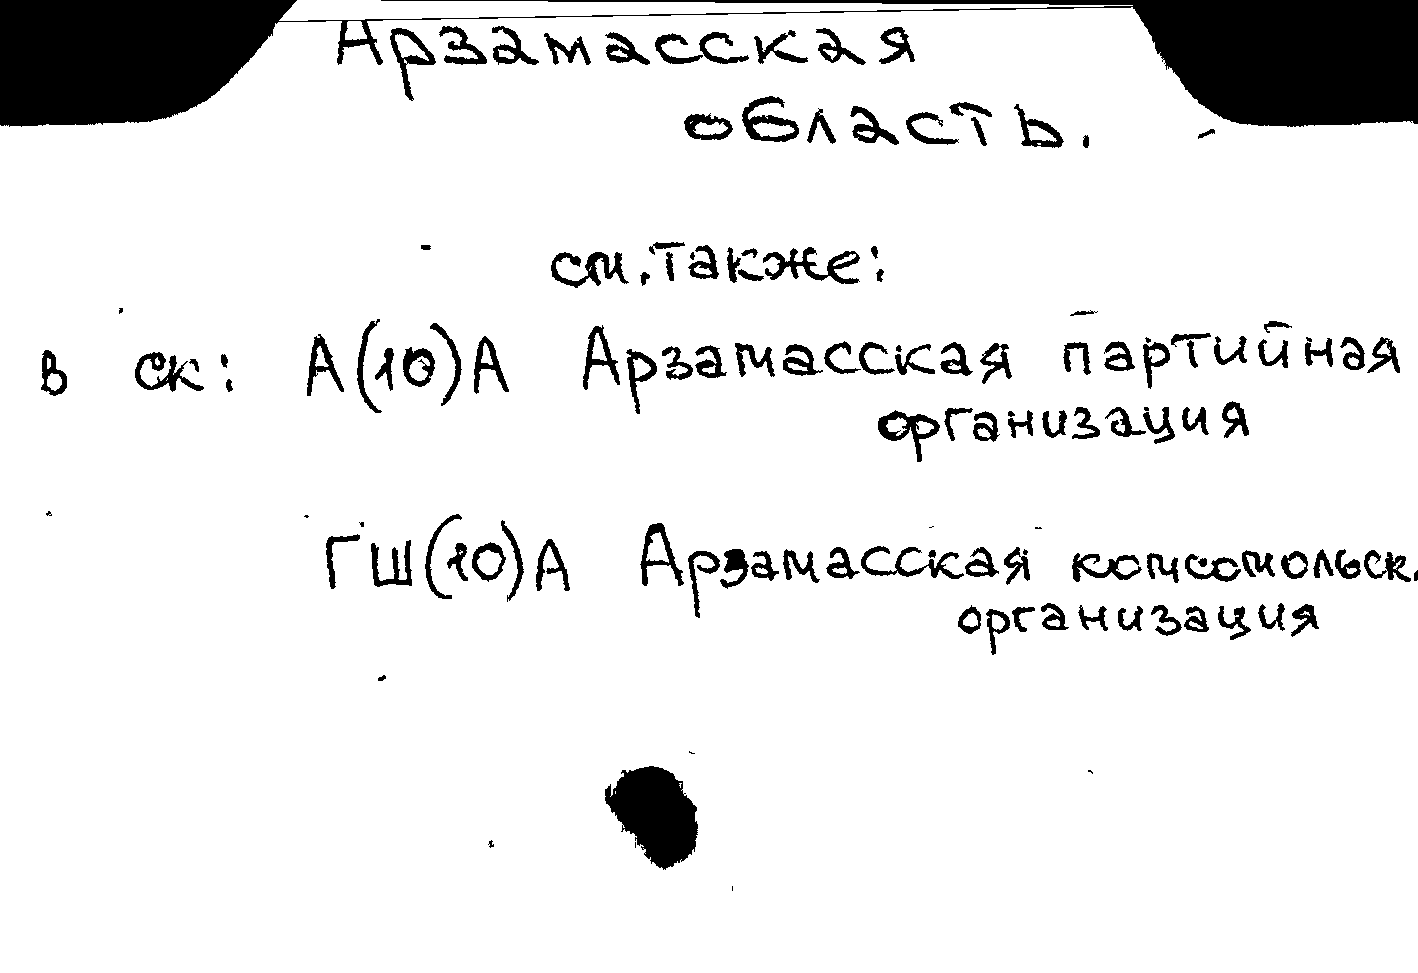 Арзамасская
область.
см. также:
в ск: А(10)А Арзамасская партийная
организация
ГШ(10)А Арзамасская комсомольск.
организация